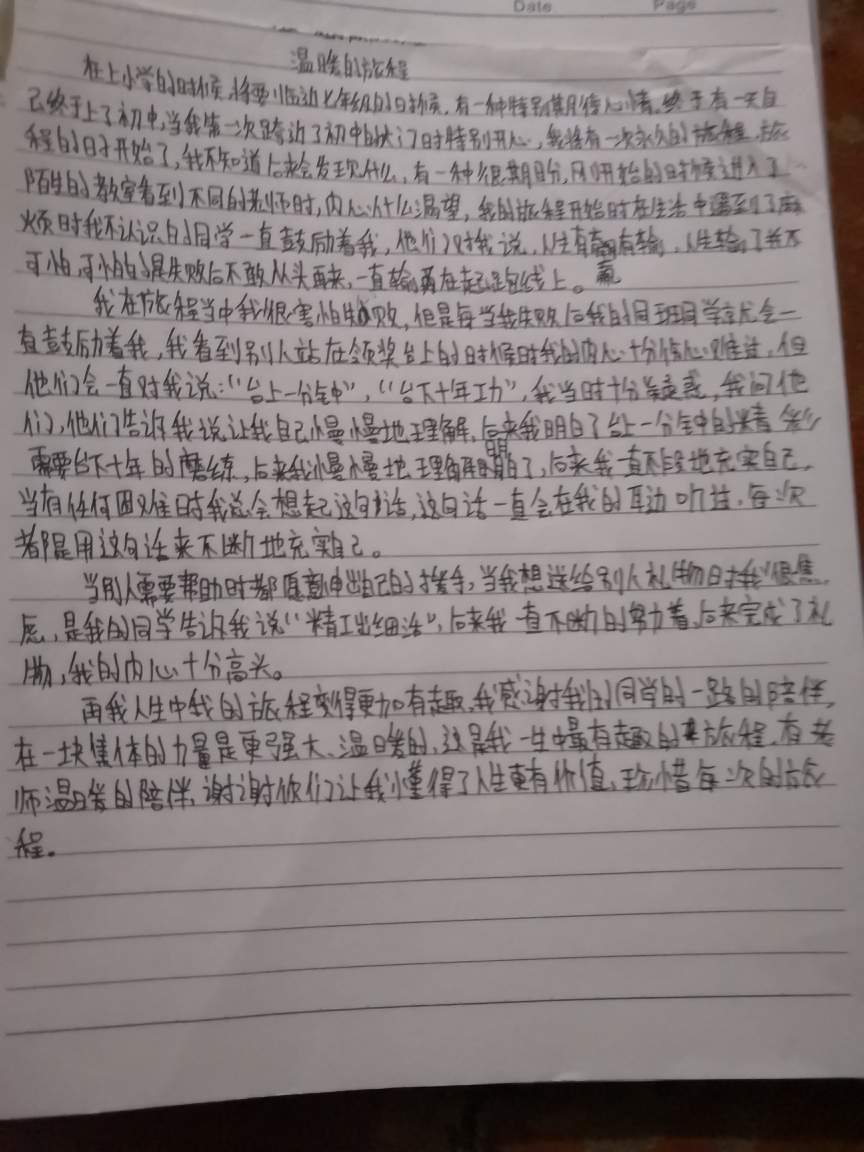 Date Page
温暖的旅程
在上小学的时候,将要临近七年级的时候,有一种特别期待心情,终于有一天自
己终于上了初中,当我第一次跨进了初中的大门时特别开心,我将有一次永久的旅程,旅
程的日子开始了,我不知道后来会发现什么,有一种很期盼,刚开始的时候进入了
陌生的教室看到不同的老师时,内心什么渴望,我的旅程开始时在生活中遇到了麻
烦时我不认识的同学一直鼓励着我,他们对我说,人生有赢有输,人生输了并不
可怕,可怕的是失败后不敢从头再来,一直输再在起跑线上。
我在旅程当中我很害怕失败,但是每当我失败后我的同班同学就会一
直鼓励着我,我看到别人站在领奖台上的时候时我的内心十分难过,但
他们会一直对我说:“台上一分钟”,“台下十年功”,我当时十分疑惑,我问他
们,他们告诉我说让我自己慢慢地理解,后来我明白了台上一分钟的精彩
需要台下十年的磨练,后来我慢慢地理解明白了,后来我一直不段地充实自己,
当有任何困难时我总会想起这句话,这句话一直会在我的耳边响,每次
都是用这句话来不断地充实自己。
当别人需要帮助时都愿意伸出自己的援手,当我想送给别人礼物时我很焦
虑,是我的同学告诉我说“精工出细活”,后来我一直不断的努力着,后来完成了礼
物,我的内心十分高兴。
再我人生中我的旅程变得更加有趣,我感谢我的同学的一路的陪伴,
在一块集体的力量是更强大、温暖的,这是我一生中最有趣的旅程,有老
师温暖的陪伴,谢谢你们让我懂得了人生更有价值,珍惜每一次的旅
程。